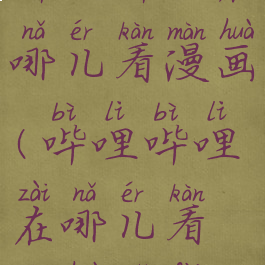 nǎ ér kàn màn huà
哪儿看漫画
bì lì bì lì
(哔哩哔哩
zài nǎ ér kàn
在哪儿看